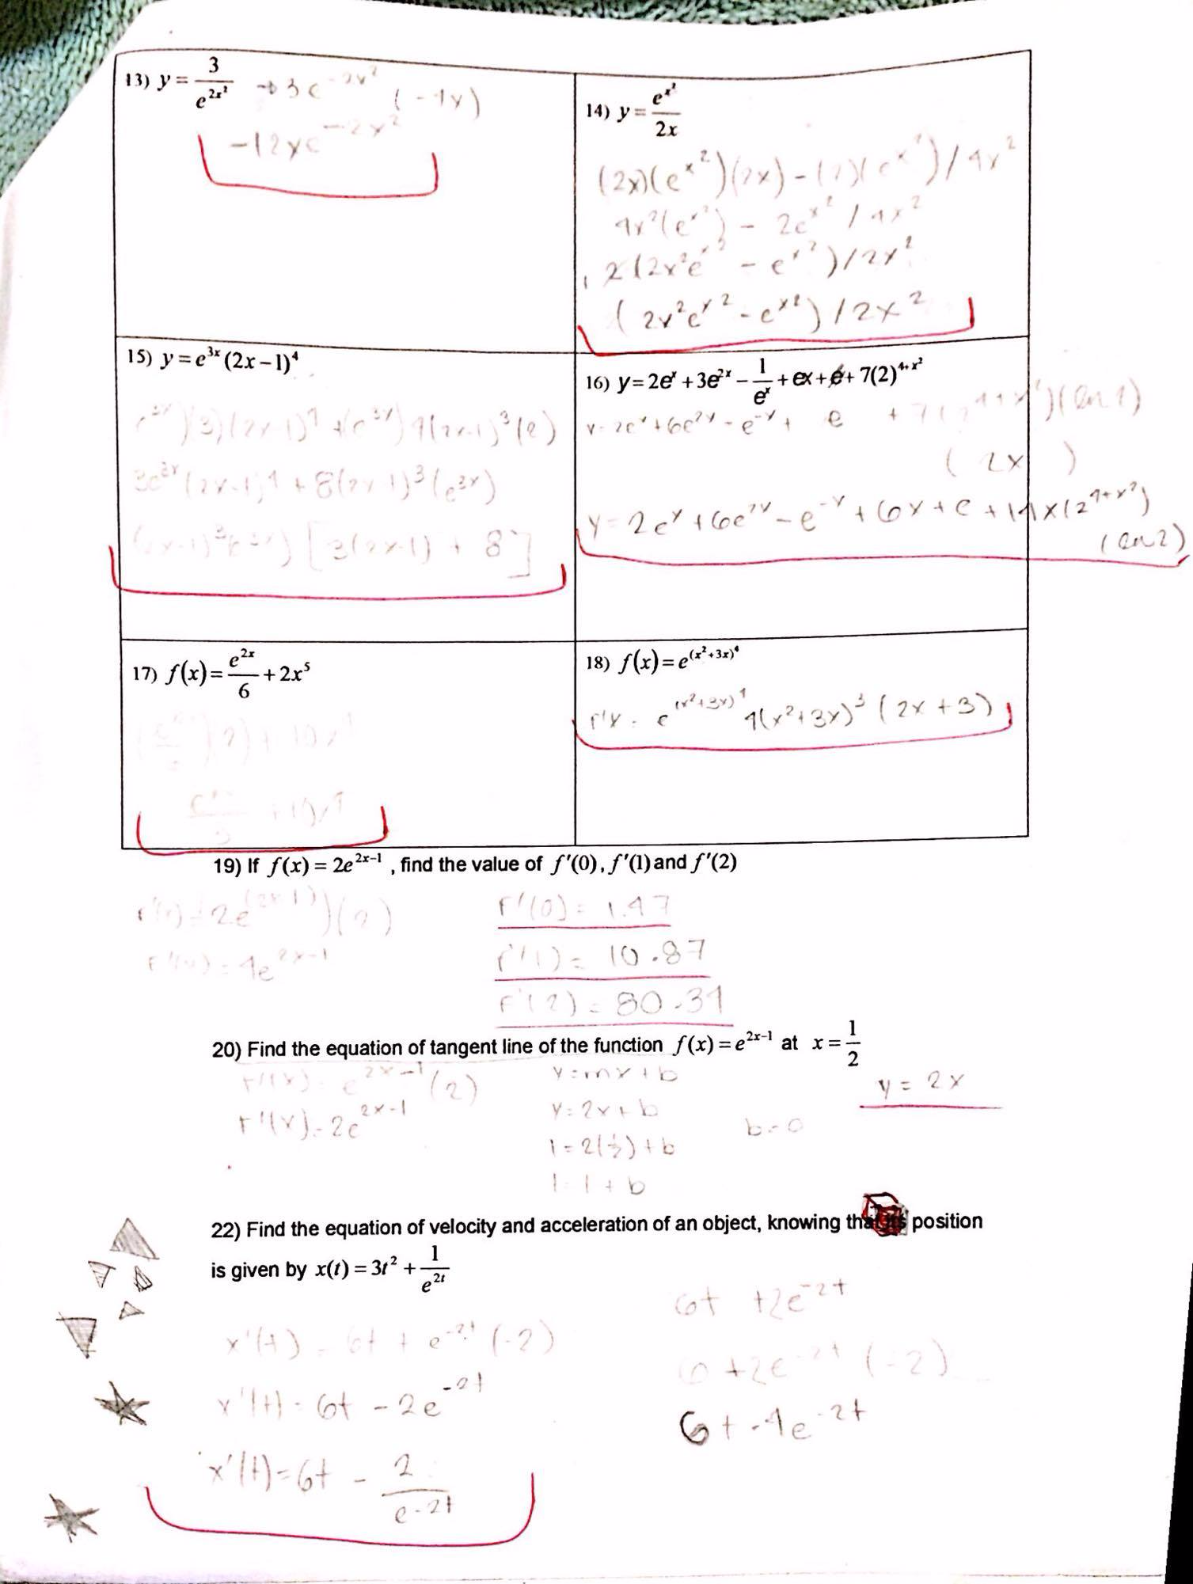 13) y = 3 / e^{2x²} → 3e^{-2x²} (-4x)
-12xe^{-2x²}
14) y = e^{x²} / 2x
(2x)(e^{x²})(2x) - (2)(e^{x²}) / 4x²
4x²(e^{x²}) - 2e^{x²} / 4x²
2(2x²e^{x²} - e^{x²}) / 2x²
(2x²e^{x²} - e^{x²}) / 2x²
15) y = e^{3x}(2x-1)⁴
(e^{3x})(3)(2x-1)⁴ + (e^{3x})4(2x-1)³(2)
3e^{3x}(2x-1)⁴ + 8(2x-1)³(e^{3x})
(2x-1)³(e^{3x}) [3(2x-1) + 8]
16) y = 2e^x + 3e^{2x} - 1/e^x + ex + e + 7(2)^{4+x²}
y = 2e^x + 6e^{2x} - e^{-x} + e + 7(2^{4+x²})(ln
(2x)
y = 2e^x + 6e^{2x} - e^{-x} + 6x + e + 14x(2^{4+x²})
(ln2)
17) f(x) = e^{2x}/6 + 2x⁵
(2) + 10x⁴
+ 10x⁴
18) f(x) = e^{(x²+3x)⁴}
f'x = e^{(x²+3x)⁴} 4(x²+3x)³ (2x+3)
19) If f(x) = 2e^{2x-1}, find the value of f'(0), f'(1) and f'(2)
f'(x) = 2e^{(2x-1)}(2)
f'(x) = 4e^{2x-1}
f'(0) = 1.47
f'(1) = 10.87
f'(2) = 80.34
20) Find the equation of tangent line of the function f(x) = e^{2x-1} at x = 1/2
f'(x) = e^{2x-1}(2)
f'(x) = 2e^{2x-1}
y = mx + b
y = 2x + b
1 = 2(½) + b
1 = 1 + b
b = 0
y = 2x
22) Find the equation of velocity and acceleration of an object, knowing that its position
is given by x(t) = 3t² + 1/e^{2t}
x'(t) = 6t + e^{-2t}(-2)
x'(t) = 6t - 2e^{-2t}
x'(t) = 6t - 2/e^{-2t}
6t + 2e^{-2t}
6 + 2e^{-2t}(-2)
6t - 4e^{-2t}